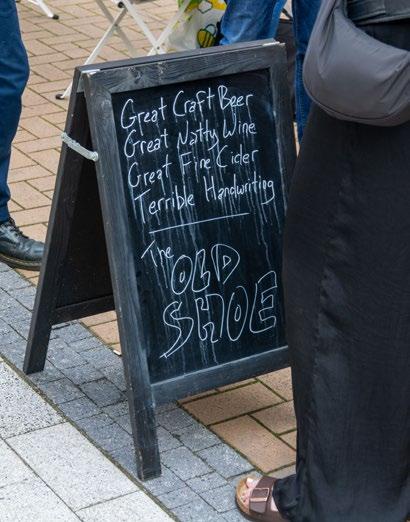 Great Craft Beer
Great Natty Wine
Great Fine Cider
Terrible Handwriting
The
OLD
SHOE